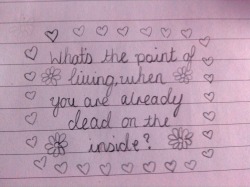 What's the point of
living, when
you are already
dead on the
inside?